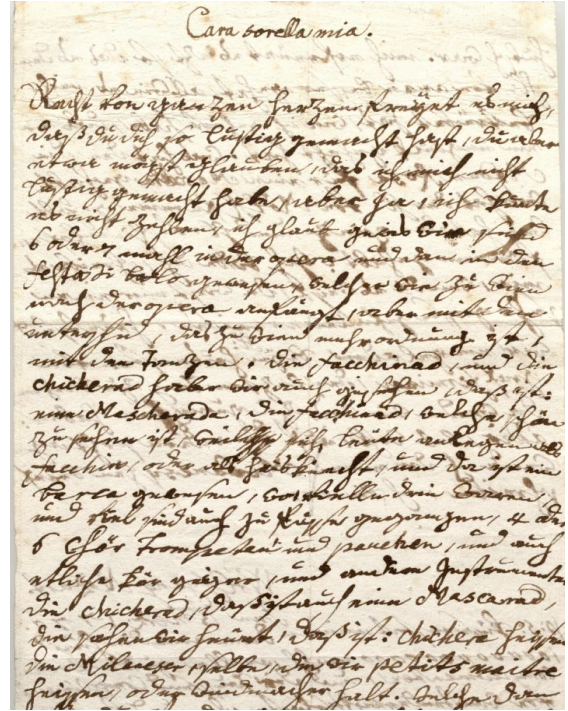 Cara sorella mia.
Recht von ganzen herzen freyet es mich,
daß du dich so lustig gemacht hast, du aber
etwa mögst glauben, das ich mich nicht
lustig gemacht habe, aber ja, ich könte
es nicht zehlen, ich glaub gwis wir sind
6 oder 7 mahl in der opera und dan in den
festa di balo gewesen, welche wie zu wien
nach der opera anfängt, aber mit dem
unterschid, das zu wien mehr ordnung ist,
mit den tantzen. die facchinad, und die
chicherad haben wir auch gesehen, daß ist:
eine Mascherada, die facchinad, welche schön
zu sehen ist, weillen sich leüte anlegen als
facchin, oder als hausknecht, und da ist ein
barca gewesen, wo vielle drin waren,
und viel sind auch zu fusse gegangen, 4 oder
6 chör trompeten und paucken, und auch
etliche kör geigen, und andere Instrumenten
die chicherad, daß ist auch eine Mascarad,
die sahen wir heunt, daß ist: chichera heissen
die Milaneser, selbe, die wir petits maitre
heissen, oder windmacher halt. welche dan